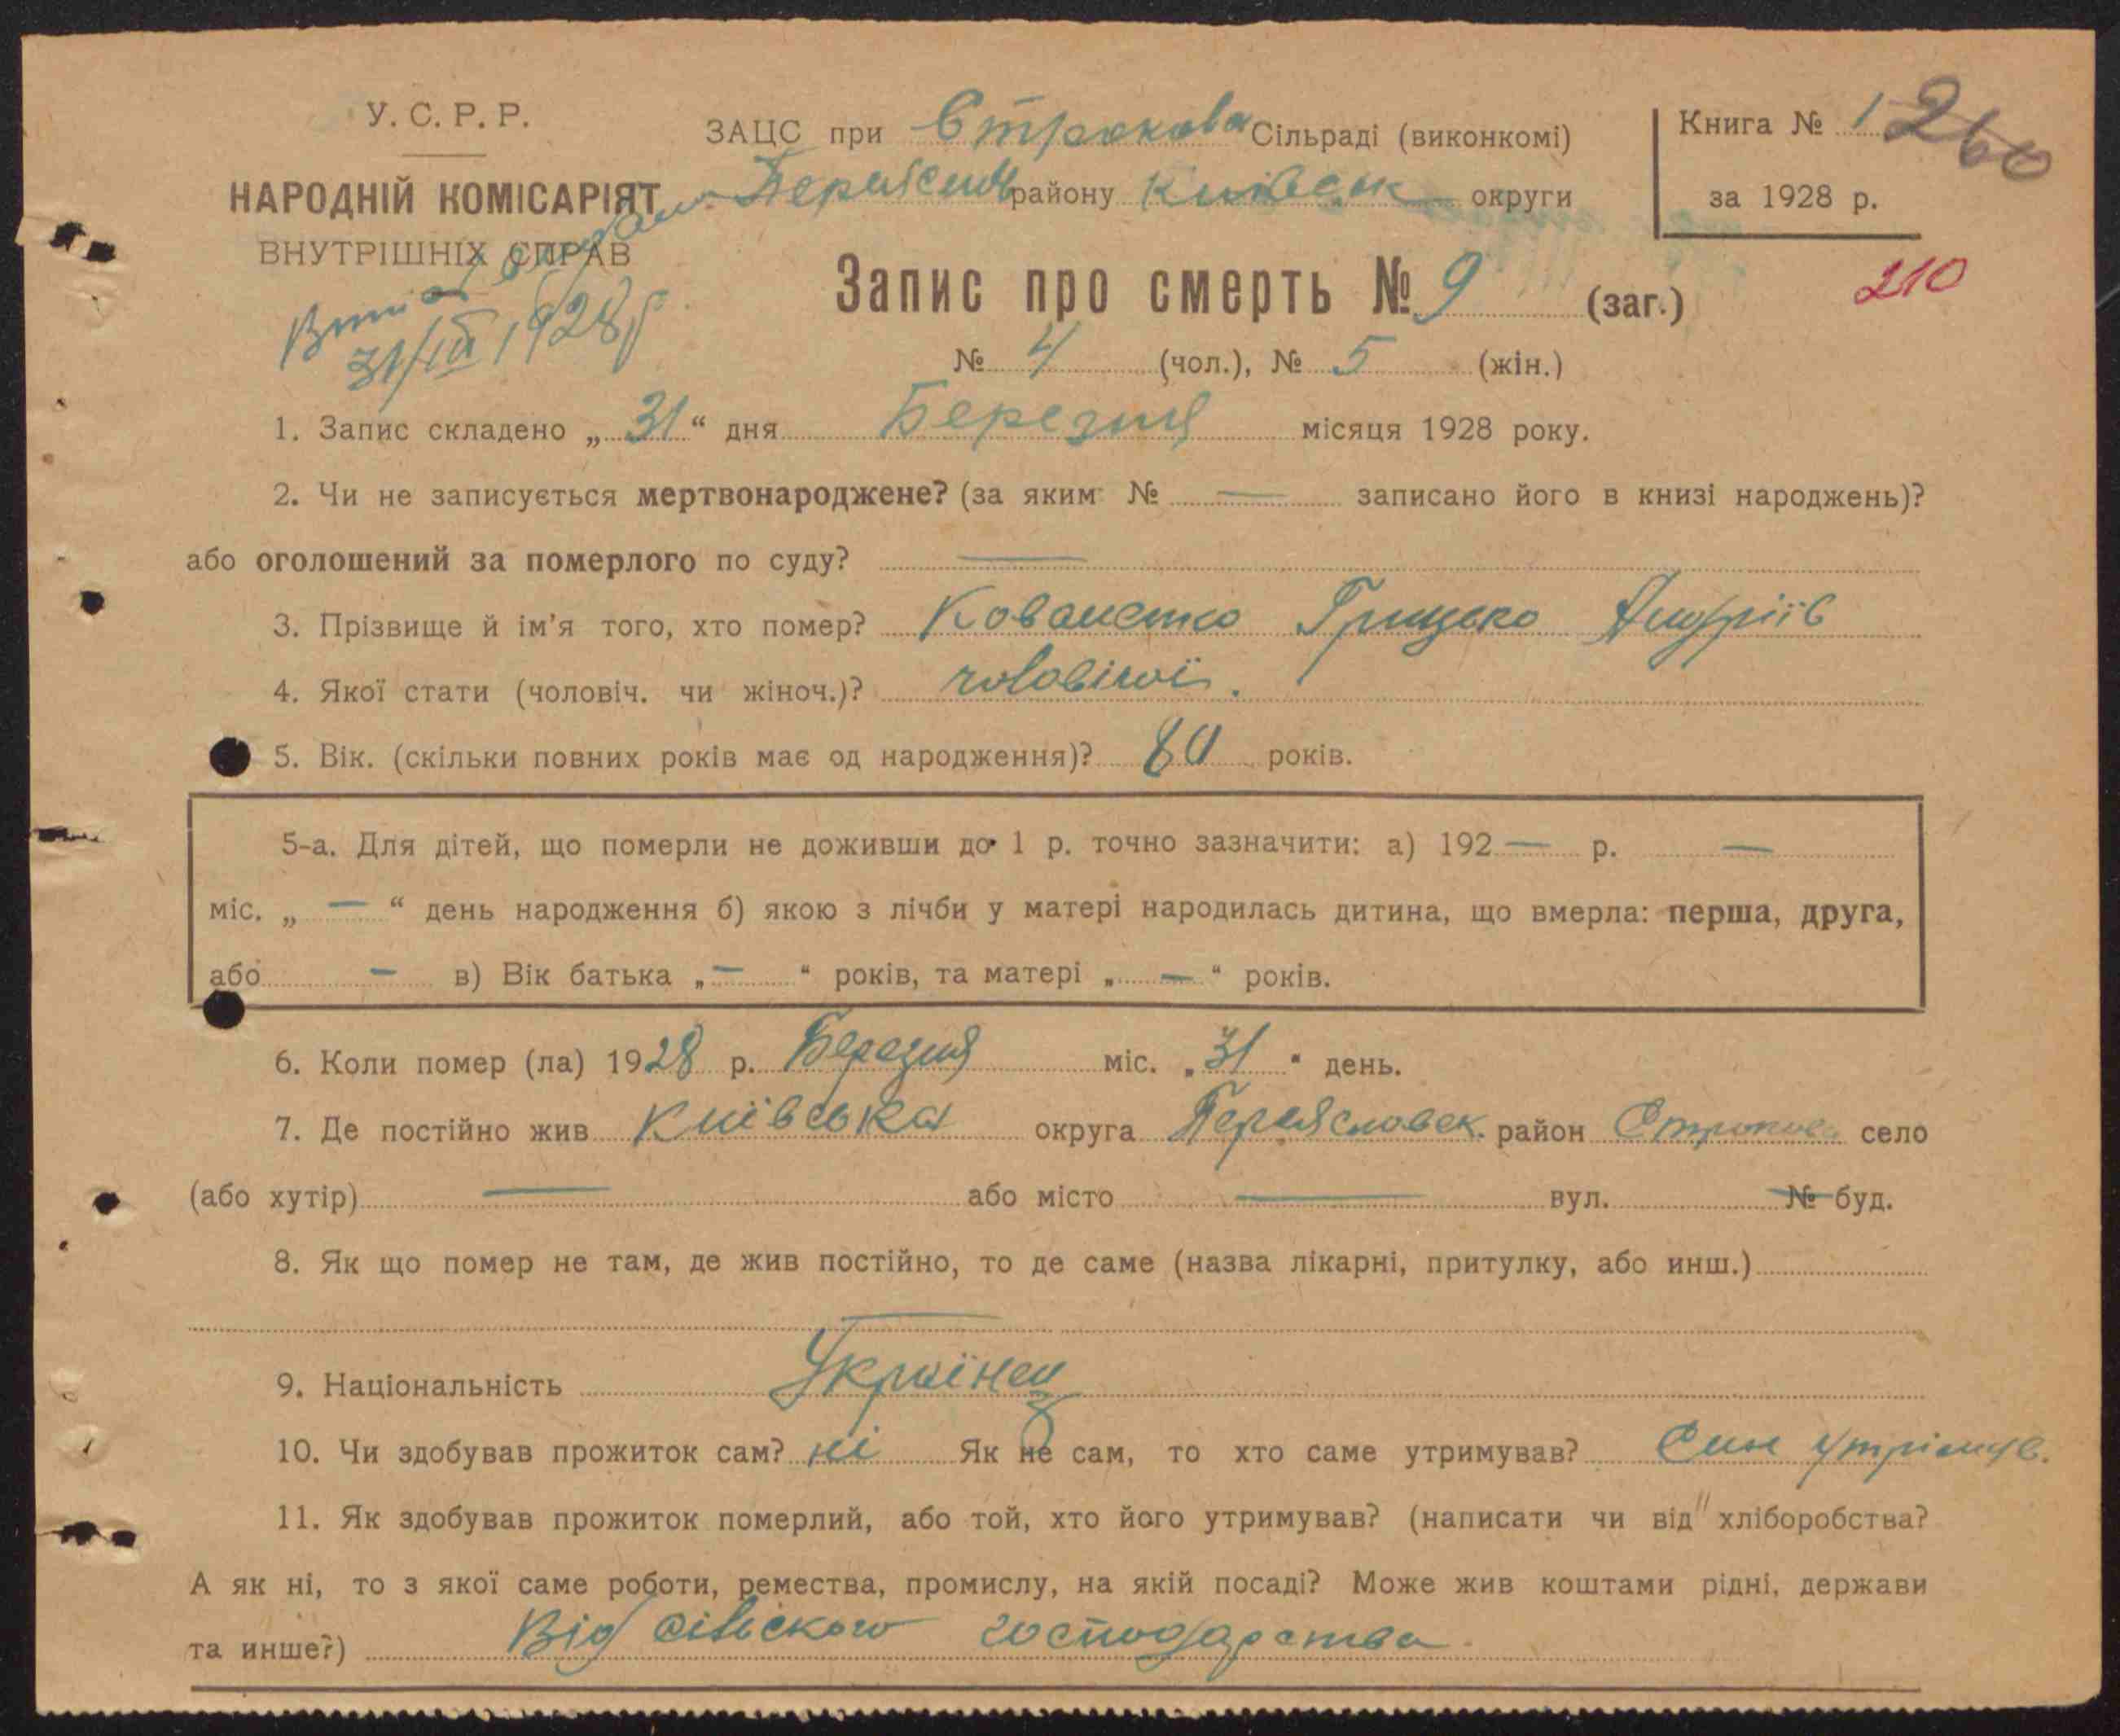 У. С. Р. Р.
НАРОДНІЙ КОМІСАРІЯТ
ВНУТРІШНІХ СПРАВ
31/III 1928 р.
ЗАЦС при Строкова Сільраді (виконкомі)
району Київськ округи
Книга № 1 260
за 1928 р.
210
Запис про смерть № 9 (заг.)
№ 4 (чол.), № 5 (жін.)
1. Запис складено „31“ дня Березня місяця 1928 року.
2. Чи не записується мертвонароджене? (за яким № — записано його в книзі народжень)?
або оголошений за померлого по суду? —
3. Прізвище й ім'я того, хто помер? Коваленко Грицько Андріїв
4. Якої стати (чоловіч. чи жіноч.)? чоловічої.
5. Вік. (скільки повних років має од народження)? 80 років.
5-а. Для дітей, що померли не доживши до 1 р. точно зазначити: а) 192 — р. —
міс. „ — “ день народження б) якою з лічби у матері народилась дитина, що вмерла: перша, друга,
або — в) Вік батька „ — “ років, та матері „ — “ років.
6. Коли помер (ла) 1928 р. Березня міс. „31“ день.
7. Де постійно жив Київська округа Переясловск. район Строкова село
(або хутір) — або місто — вул. № буд.
8. Як що помер не там, де жив постійно, то де саме (назва лікарні, притулку, або инш.)
—
9. Національність Українец
10. Чи здобував прожиток сам? ні Як не сам, то хто саме утримував? Син утрімув.
11. Як здобував прожиток померлий, або той, хто його утримував? (написати чи від хліборобства?
А як ні, то з якої саме роботи, ремества, промислу, на якій посаді? Може жив коштами рідні, держави
та инше?) Від сільского господарства